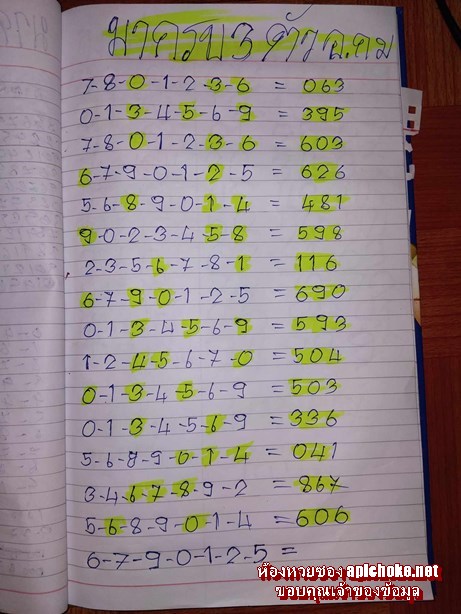 มาครบ3ตัว อ.คม
7-8-0-1-2-3-6 = 063
0-1-3-4-5-6-9 = 395
7-8-0-1-2-3-6 = 603
6-7-9-0-1-2-5 = 626
5-6-8-9-0-1-4 = 481
9-0-2-3-4-5-8 = 598
2-3-5-6-7-8-1 = 116
6-7-9-0-1-2-5 = 690
0-1-3-4-5-6-9 = 593
1-2-4-5-6-7-0 = 504
0-1-3-4-5-6-9 = 503
0-1-3-4-5-6-9 = 336
5-6-8-9-0-1-4 = 041
3-4-6-7-8-9-2 = 867
5-6-8-9-0-1-4 = 606
6-7-9-0-1-2-5 =
ห้องหวยซอง apichoke.net
ขอบคุณเจ้าของข้อมูล